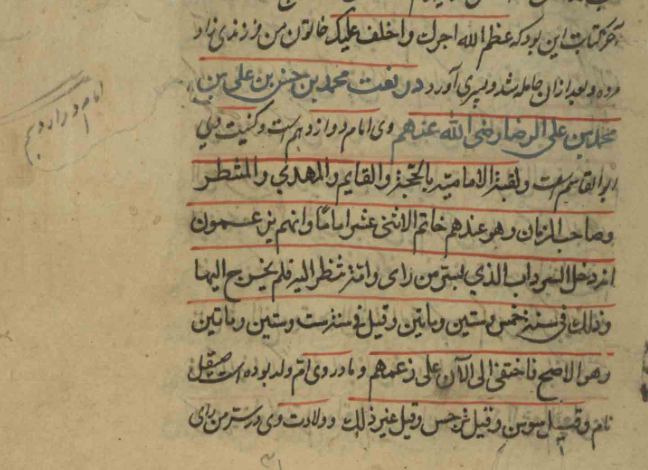 آخر کتابت این بود که عظم الله اجرک و اخلف علیک خاتون من فرزندی نزاد
بوده و بعد ازان حامله شد و پسری آورد در نعت محمد بن حسن بن علی بن
محمد بن علی الرضا رضی الله عنهم وی امام دوازدهم است و کنیت وی
ابوالقاسم است و لقبه الامامیة بالحجة والقایم والمهدی والمنتظر
وصاحب الزمان وهو عندهم خاتم الاثنی عشر اماما وانهم یزعمون
انه دخل السرداب الذی بسر من رای وامه تنظر الیه فلم یخرج الیها
وذلک فی سنة خمس وستین ومأتین وقیل فی سنة ست وستین ومأتین
وهو الاصح فاختفی الی الآن علی زعمهم و مادر وی ام ولد بوده است صقیل
نام وقیل سوسن وقیل نرجس وقیل غیر ذلک و ولادت وی در سر من رای
امام دوازدهم